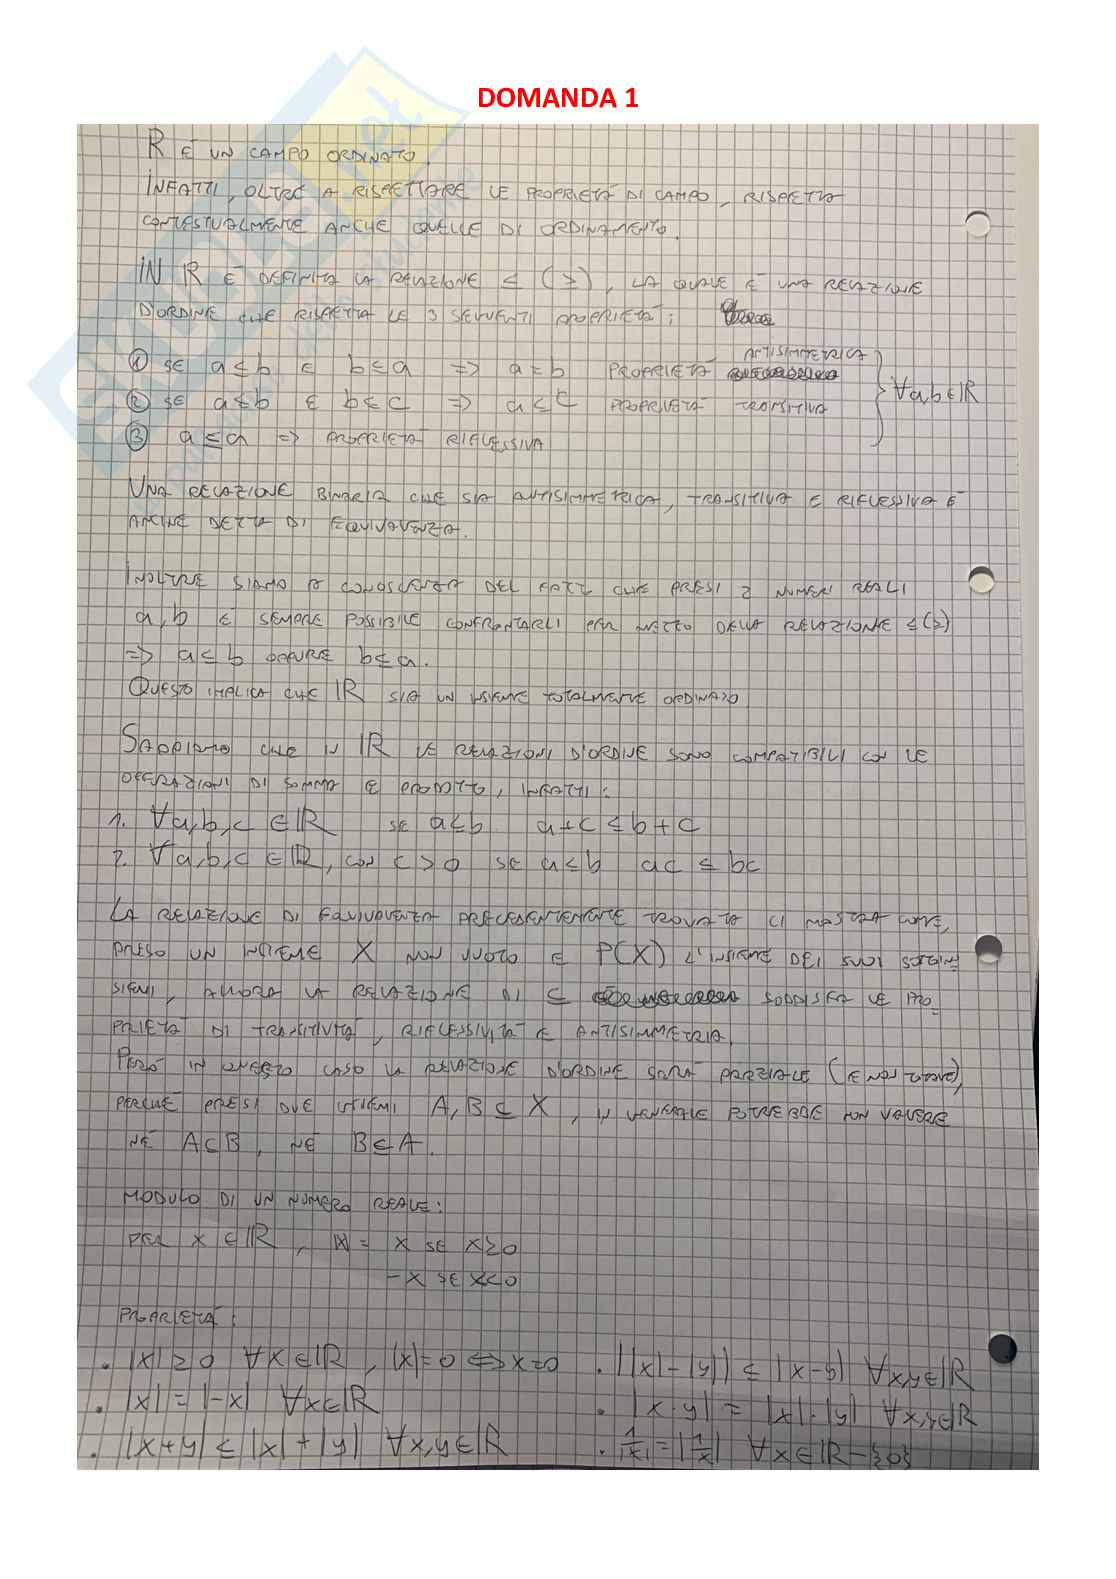 DOMANDA 1
R È UN CAMPO ORDINATO.
INFATTI, OLTRE A RISPETTARE LE PROPRIETÀ DI CAMPO, RISPETTA
CONTESTUALMENTE ANCHE QUELLE DI ORDINAMENTO.
IN ℝ È DEFINITA LA RELAZIONE ≤ (≥), LA QUALE È UNA RELAZIONE
D'ORDINE CHE RISPETTA LE 3 SEGUENTI PROPRIETÀ:
① SE a≤b E b≤a => a=b PROPRIETÀ ANTISIMMETRICA
② SE a≤b E b≤c => a≤c PROPRIETÀ TRANSITIVA
③ a≤a => PROPRIETÀ RIFLESSIVA
∀a,b∈ℝ
UNA RELAZIONE BINARIA CHE SIA ANTISIMMETRICA, TRANSITIVA E RIFLESSIVA È
ANCHE DETTA DI EQUIVALENZA.
INOLTRE SIAMO A CONOSCENZA DEL CHE PRESI 2 NUMERI REALI
a,b È SEMPRE POSSIBILE CONFRONTARLI PER MEZZO DELLA RELAZIONE ≤(≥)
=> a≤b OPPURE b≤a.
QUESTO IMPLICA CHE ℝ SIA UN INSIEME TOTALMENTE ORDINATO
SAPPIAMO CHE IN ℝ LE RELAZIONI D'ORDINE SONO COMPATIBILI CON LE
OPERAZIONI DI SOMMA E PRODOTTO, INFATTI:
1. ∀a,b,c ∈ℝ SE a≤b a+c≤b+c
2. ∀a,b,c ∈ℝ, CON c>0 SE a≤b ac ≤ bc
LA RELAZIONE DI EQUIVALENZA PRECEDENTEMENTE TROVATA CI MOSTRA COME,
PRESO UN INSIEME X NON VUOTO E P(X) L'INSIEME DEI SUOI SOTTOIN
SIEMI, ALLORA LA RELAZIONE DI ⊆ SODDISFA LE PRO=
PRIETÀ DI TRANSITIVITÀ, RIFLESSIVITÀ E ANTISIMMETRIA.
PERÒ IN QUESTO CASO LA RELAZIONE D'ORDINE SARÀ PARZIALE (E NON TOTALE),
PERCHÉ PRESI DUE INSIEMI A,B⊆X, IN GENERALE POTREBBE NON VALERE
NÉ A⊂B, NÉ B⊆A.
MODULO DI UN NUMERO REALE:
PER x∈ℝ, |x|= x SE x≥0
-x SE x<0
PROPRIETÀ:
• |x|≥0 ∀x∈ℝ, |x|=0 <=> x=0
• |x|=|-x| ∀x∈ℝ
• |x+y|≤|x|+|y| ∀x,y∈ℝ
• ||x|-|y|| ≤ |x-y| ∀x,y∈ℝ
• |x·y| = |x|·|y| ∀x,y∈ℝ
• 1/|x| = |1/x| ∀x∈ℝ-{0}